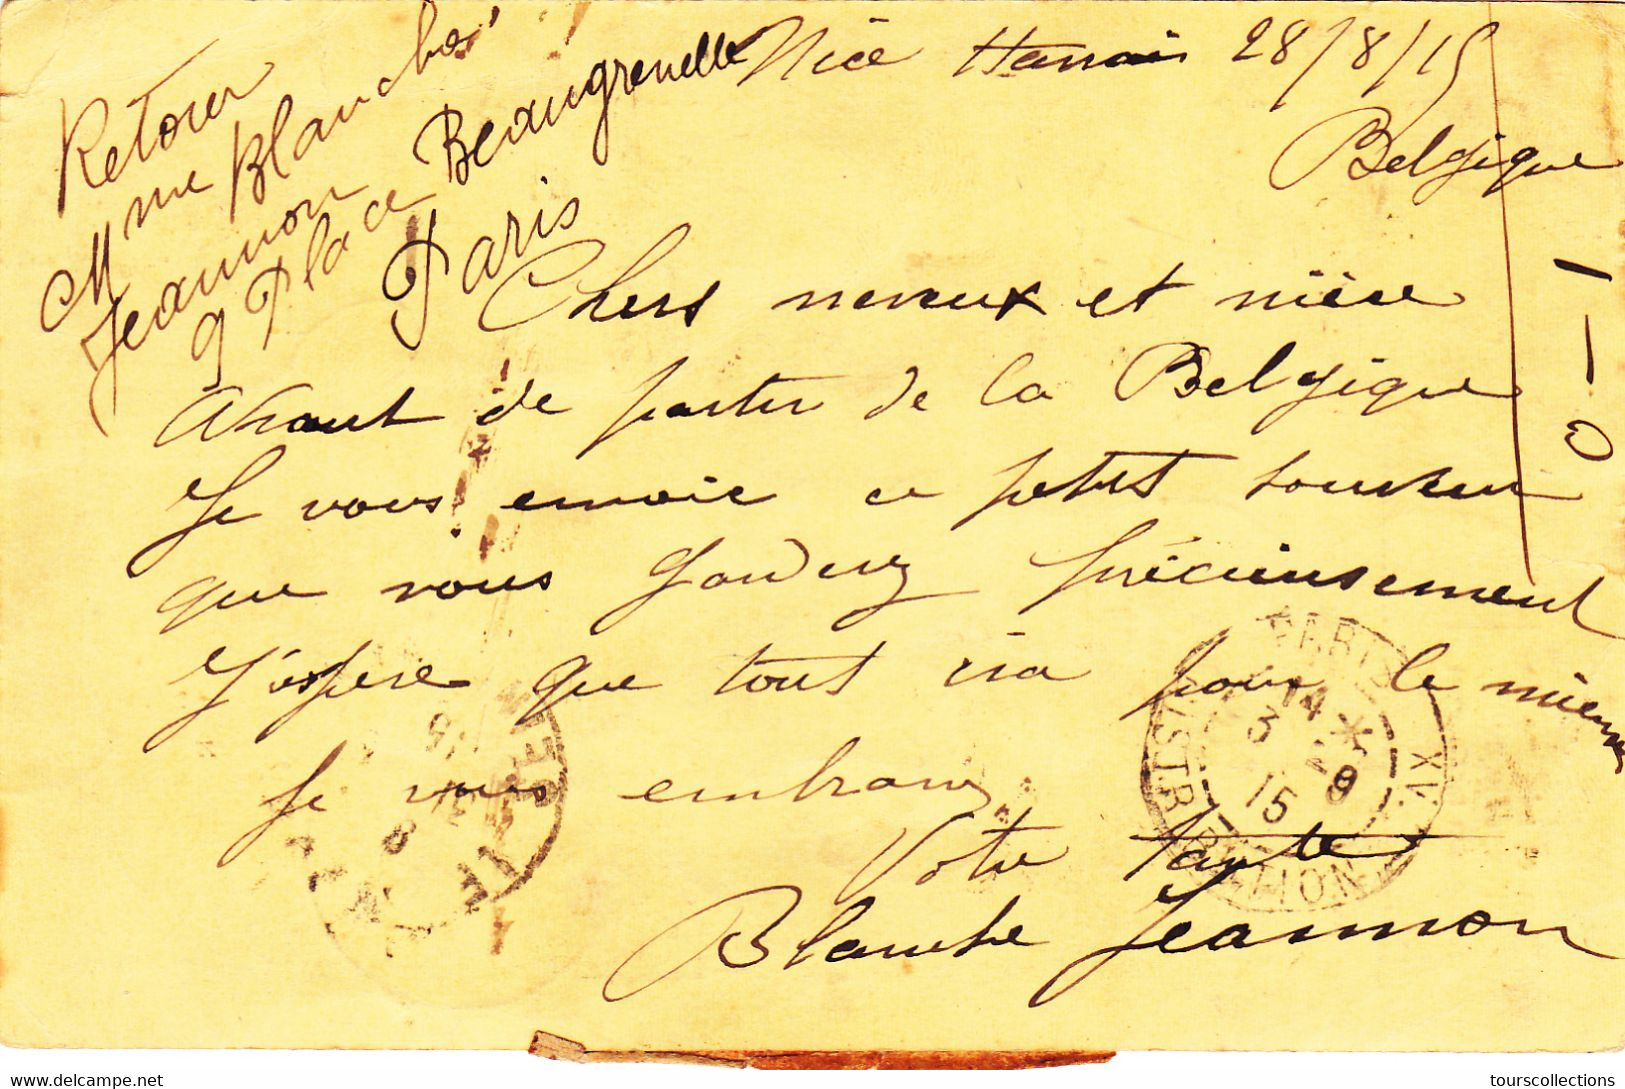 Retour
Mme Blanche
Jeannon
9 Place Beaugrenelle
Paris
28/8/15
Belgique
Chers neveux et nièce
Avant de partir de la Belgique
Je vous envoie ce petit souvenir
que vous garderez précieusement
J'espère que tout ira pour le mieux
Je vous embrasse
Votre tante
Blanche Jeannon
PARIS XV
14 *
3 9
15
DISTRIBUTION
www.delcampe.net
tourscollections